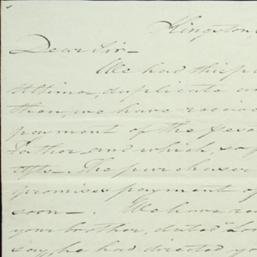 Kingston,
Dear Sir—
We had this pr
Ultimo, duplicate an
then, we have receive
payment of the
Father, and which, so
The purchaser
promises payment of
soon—. We have re
your brother, dated Lon
say, he had directed yo